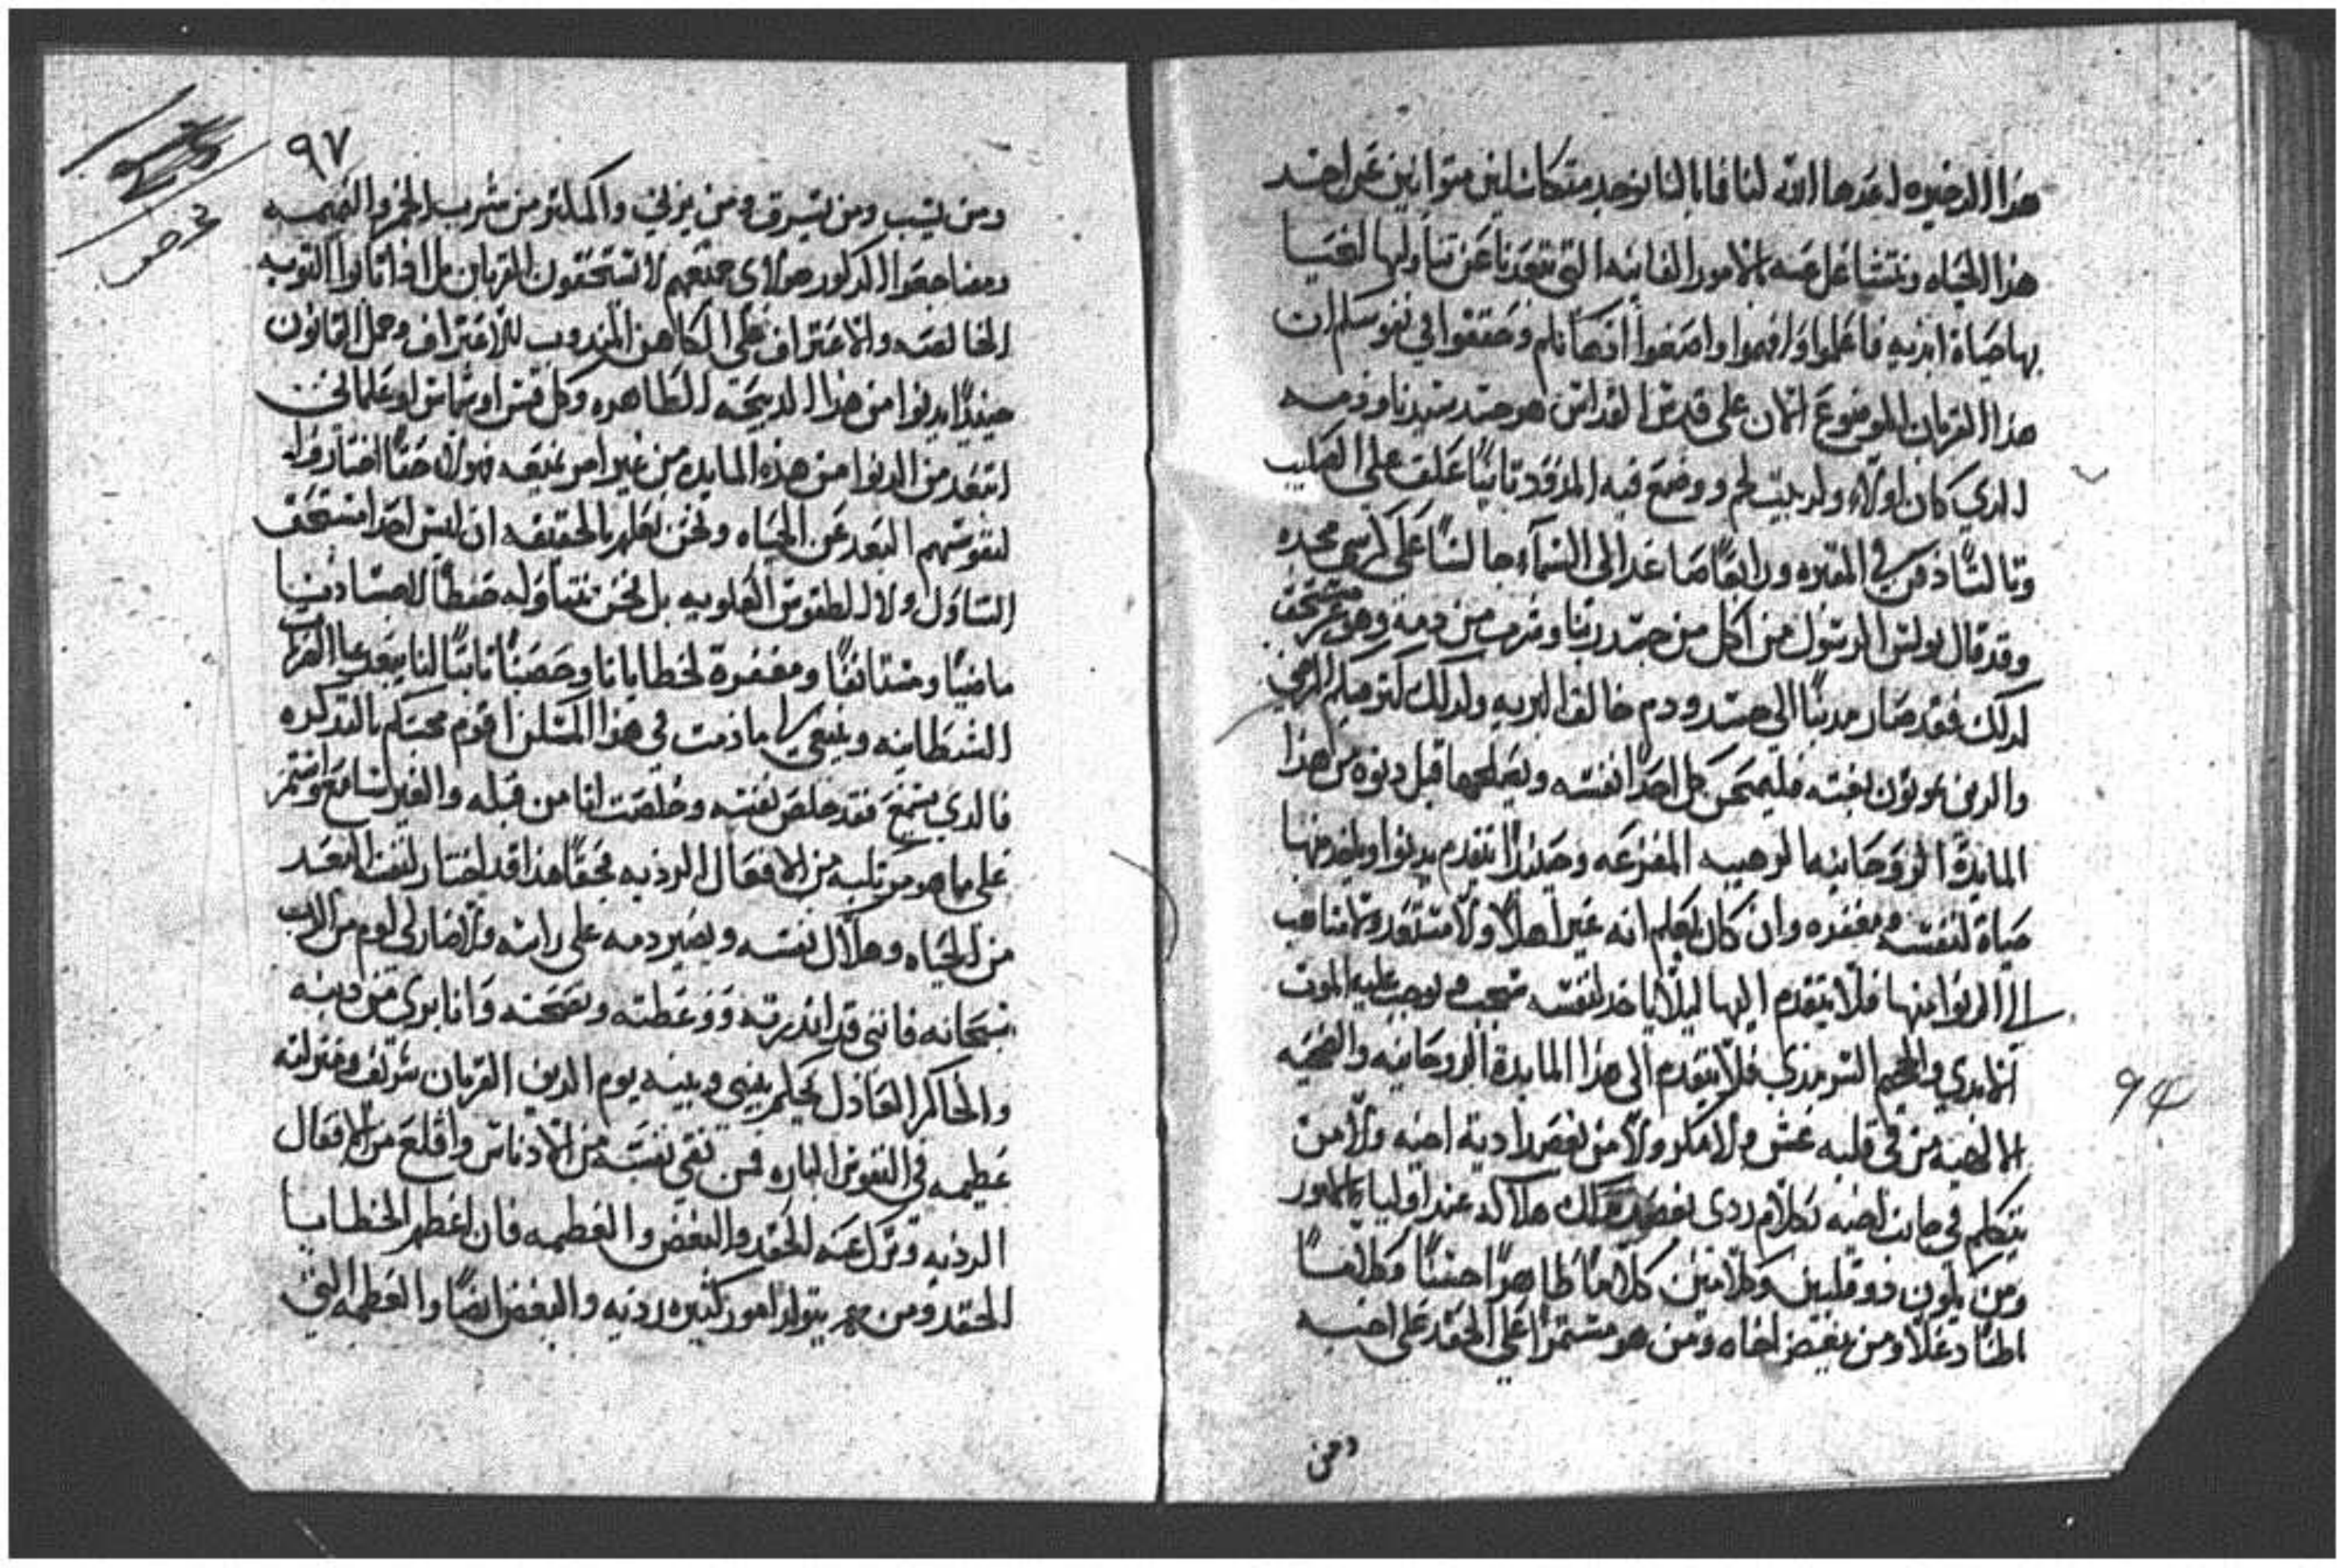 هذا الدخيره اعدها الله لنا فما بالنا نوجد متكاسلين متوانين عن اخد
هذا الحياه ونتشاغل عنه بالامور الفانيه التي تبعدنا عن تناولها لنحيا
بها حياة ابديه فاعلموا وافهموا واصغوا اذهانكم وحققوا في نفوسكم ان
هذا القربان الموضوع الان على قدس القداس هو جسد سيدنا ودمه
الدي كان اولاً ولد ببيت لحم ووضع فيه المدود تانيًا علق على الصليب
وتالتًا دفن في المقبره ورابعًا صاعدا الى السماء جالسًا على كرسي مجده
وقد قال بولس الرسول من اكل من جسد ربنا وشرب من دمه وهو غير مستحق
لدلك فقد صار مدنبًا الى جسد ودم خالق البريه ولدلك كتر فيكم المرضى
والدين يموتون بغته فليمتحن كل احدًا نفسه ويصلحها قبل دنوه من هذا
المايدة الروحانيه الرهيبه المفزعه وحينيذًا يتقدم يدنوا وياخد منها
حياة لنفسه ومغفره وان كان يعلم انه غير اهلاً ولا مستعد ولا متاهب
الى الدنوا منها فلا يتقدم اليها ليلا ياخد لنفسه سخب ويوجب عليه الموت
الابدي والجحيم السرمدي فلا يتقدم الى هذا المايدة الروحانيه والضحيه
الالهيه من في قلبه غش ولا مكر ولا من يقصد ادية اخيه ولا من
يتكلم في جانب اخيه بكلام ردى هلاكه عند اوليا الامور
ومن يكون ذو قلبين وكلامين كلامًا ظاهرًا حسنًا وكلامًا
باطنًا دغلا ومن يبغض اخاه ومن هو مستمرًا على الحقد على اخيه
ومن
٩٧
ومن يسب ومن يسرق ومن يزني والمكتر من شرب الخمر والنميمه
المدكور هولاى جميعهم لا تستحقون القربان بل اذا اتوا التوبه
الخالصه والاعتراف على الكاهن المندوب للاعتراف وحمل القانون
حينيذًا يدنوا من هذا الدبيحه الطاهره وكل قس او شماس او علماني
ابتعد من الدنوا من هذه المايده من غير امر يمنعه فهولاى حقًا اختاروا
لنفوسهم البعد عن الحياه ونحن نعلم بالحقيقه ان ليس احدا مستحق
التناول ولا الطقوس العلويه بل نحن نتناوله حفظًا لاجسادنا
ماضيًا ومستانفًا ومغفرة لخطايانا وحصنًا تابتًا لنا يبعد عنا الحركات
الشيطانيه وينبغي لي ما دمت في هذا المسكن اقوم محبتكم بالتدكره
فالدي يسمع فقد خلص نفسه وخلصت انا من قبله والغير سامع واستمر
على ما هو مرتكبه من الافعال الرديه فحقًا هذا قد اختار لنفسه البعد
من الحياه وهلاك نفسه ويصير دمه على راسه ولا صار لي لوم من الرب
سبحانه فانني قد اندرته ووعظته ونصحته وانا بري من دينه
والحاكم العادل يحكم بيني وبينه يوم الدين القربان شرف ومنزلته
عظيمه في النفوس الباره فمن نقى نفسه من الادناس واقلع من الافعال
الرديه وترك عنه الحقد والبغض والعظمه فان اعظم الخطايا
الحقد ومنه يتولد امور كثيره رديه والبغض ايضًا والعظمه التي